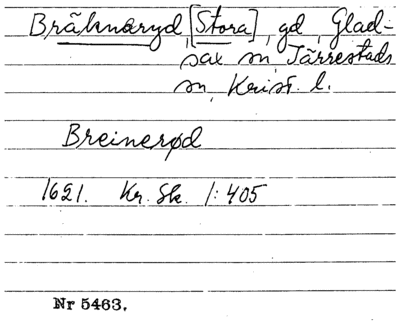 Bräknaryd [Stora], gd, Glad-
sax sn, Järrestads
sn, Krist. l.
Breinerød
1621. Kr. Sk. 1:405
Nr 5463.